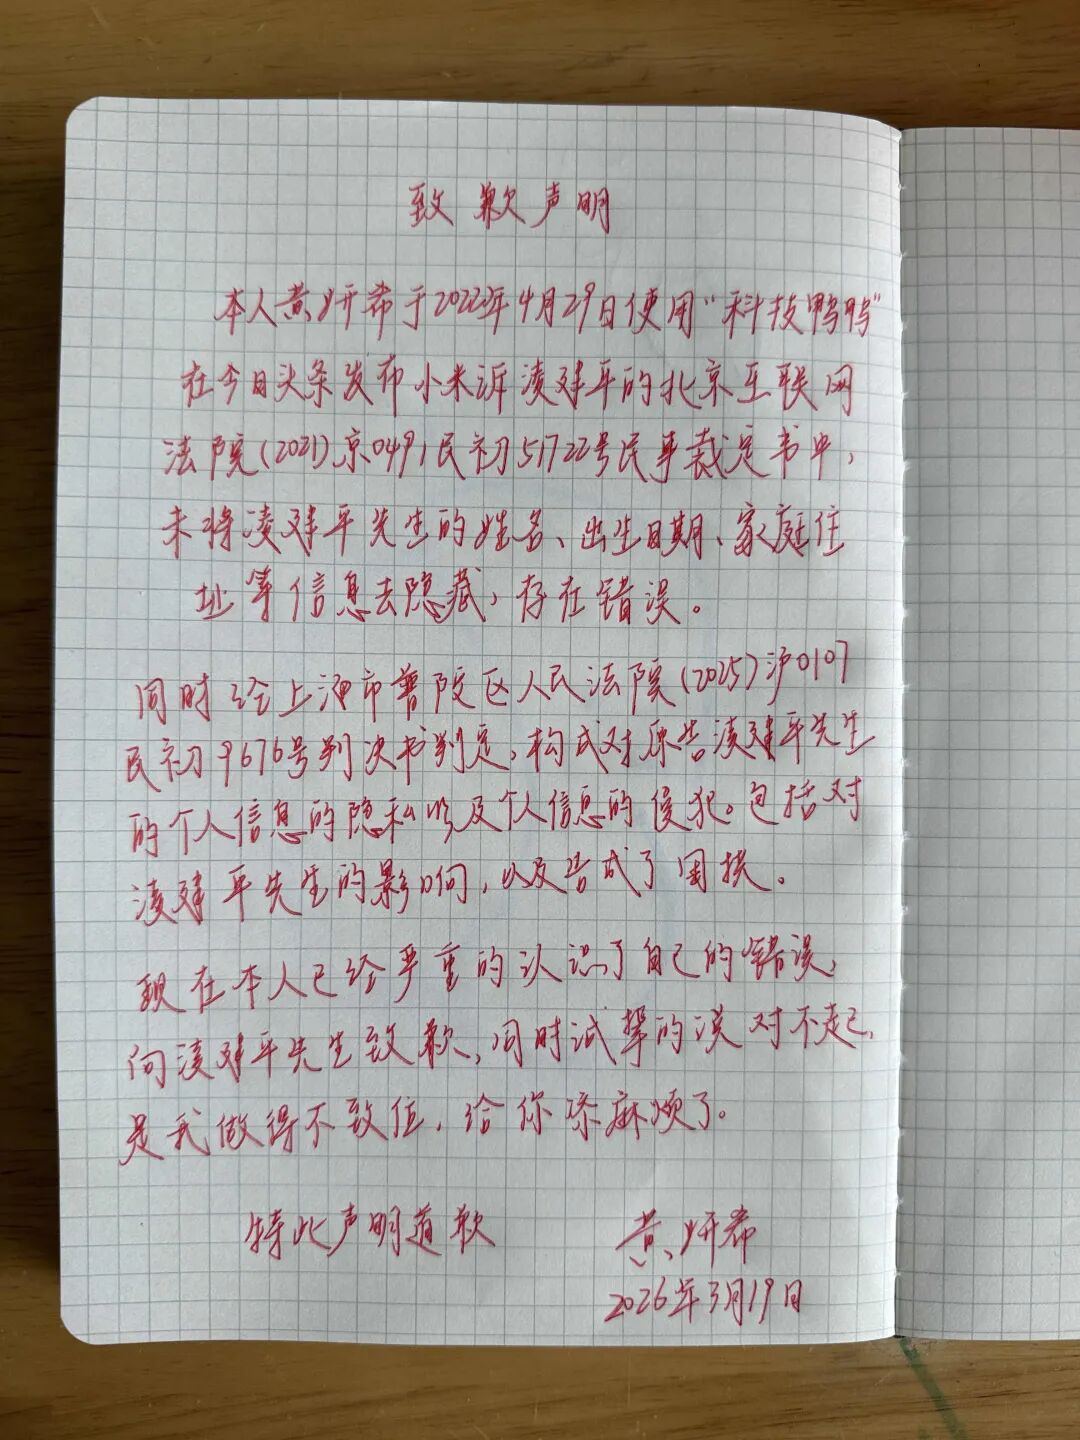 致歉声明
本人黄妍希于2022年4月29日使用“科技鸭鸭”
在今日头条发布小米诉凌建平的北京互联网
法院(2021)京0491民初51722号民事裁定书中,
未将凌建平先生的姓名、出生日期、家庭住
址等信息去隐藏,存在错误。
同时经上海市普陀区人民法院(2025)沪0107
民初9676号判决书判定,构成对原告凌建平先生
的个人信息的隐私以及个人信息的侵犯。包括对
凌建平先生的影响,以及造成了困扰。
现在本人已经严重的认识了自己的错误,
向凌建平先生致歉,同时诚挚的说对不起,
是我做得不致位,给你添麻烦了。
特此声明道歉
黄妍希
2026年3月19日